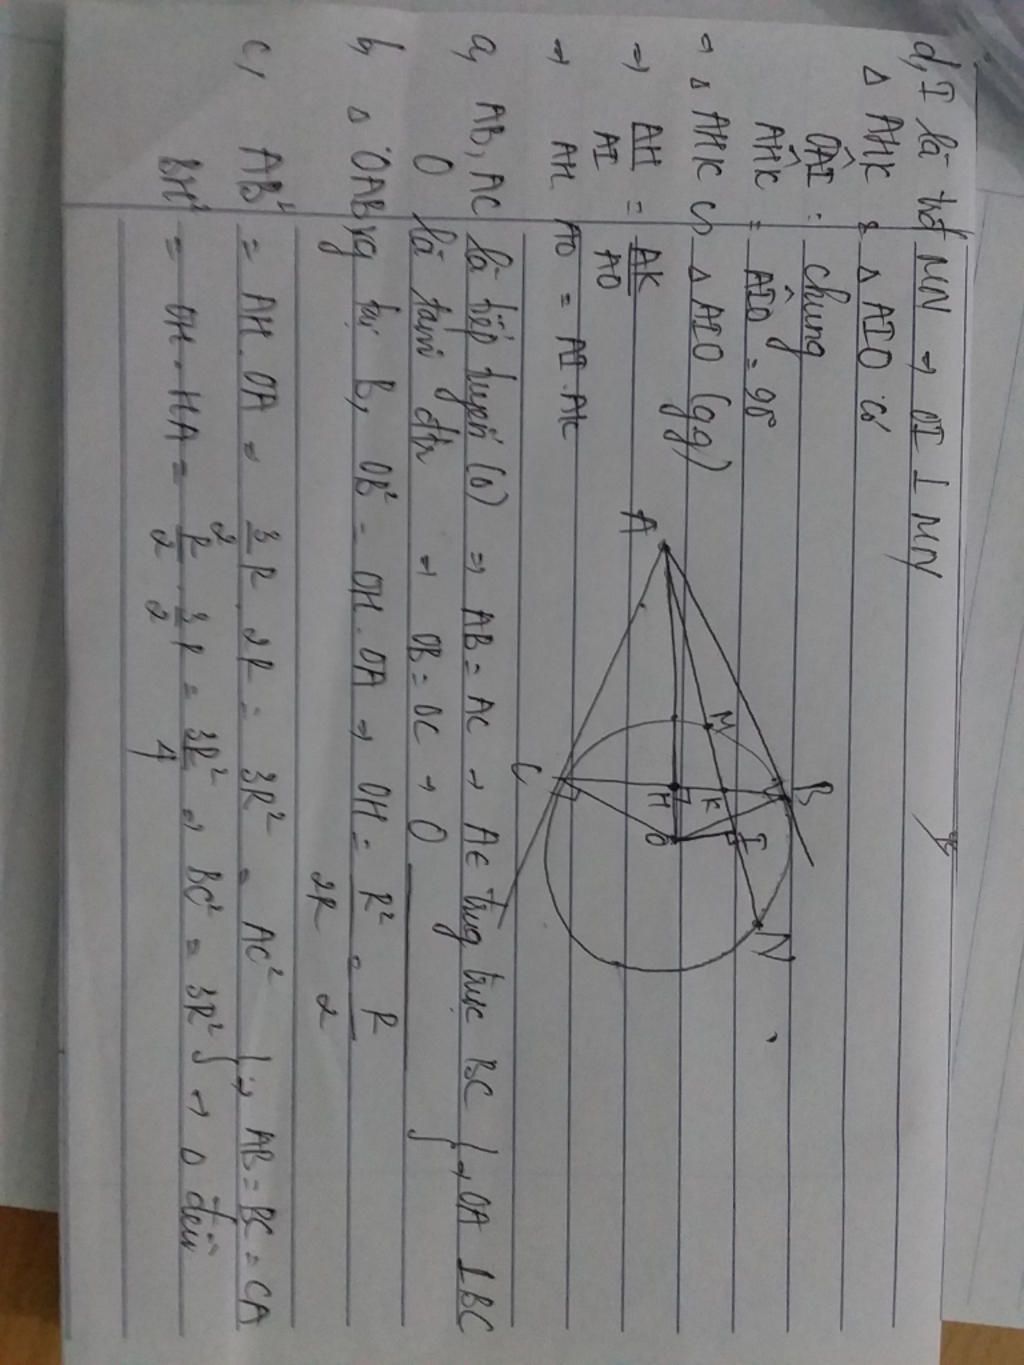 d, I là tđ MN → OI ⊥ MN
Δ AHK & Δ AIO có
OÂI : chung
AĤK = AÎO = 90°
→ Δ AHK ∽ Δ AIO (gg)
→ AH/AI = AK/AO
→ AH AO = AI.AK
A
M
B
C
H
K
O
I
N
a, AB, AC là tiếp tuyến (O) ⇒ AB = AC → A ∈ trung trực BC } → OA ⊥ BC
O là tâm đtr → OB = OC → O
b, Δ OAB vg tại B, OB² = OH.OA → OH = R²/2R = R/2
c, AB² = AH.OA = 3/2 R.2R = 3R² = AC² } → AB = BC = CA
BH² = OH.HA = R/2.3/2 R = 3R²/4 → BC² = 3R² } → Δ đều